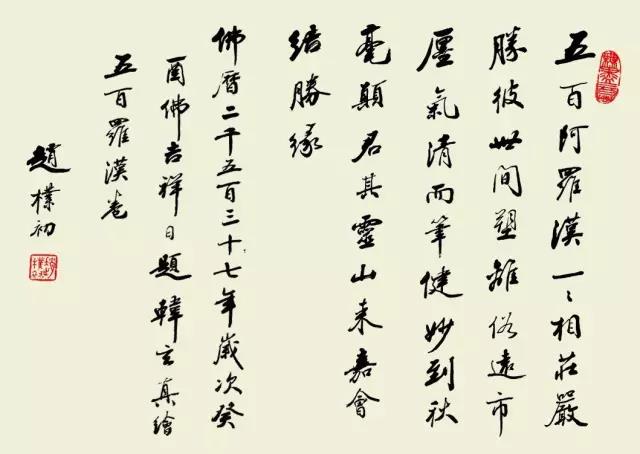 五百阿羅漢一〻相莊嚴
勝彼世間塑離俗遠市
廛氣清而筆健妙到秋
毫顛君其靈山来嘉會
結勝緣
佛曆二千五百三十七年歲次癸
酉佛吉祥日題韓玄真繪
五百羅漢卷
趙樸初